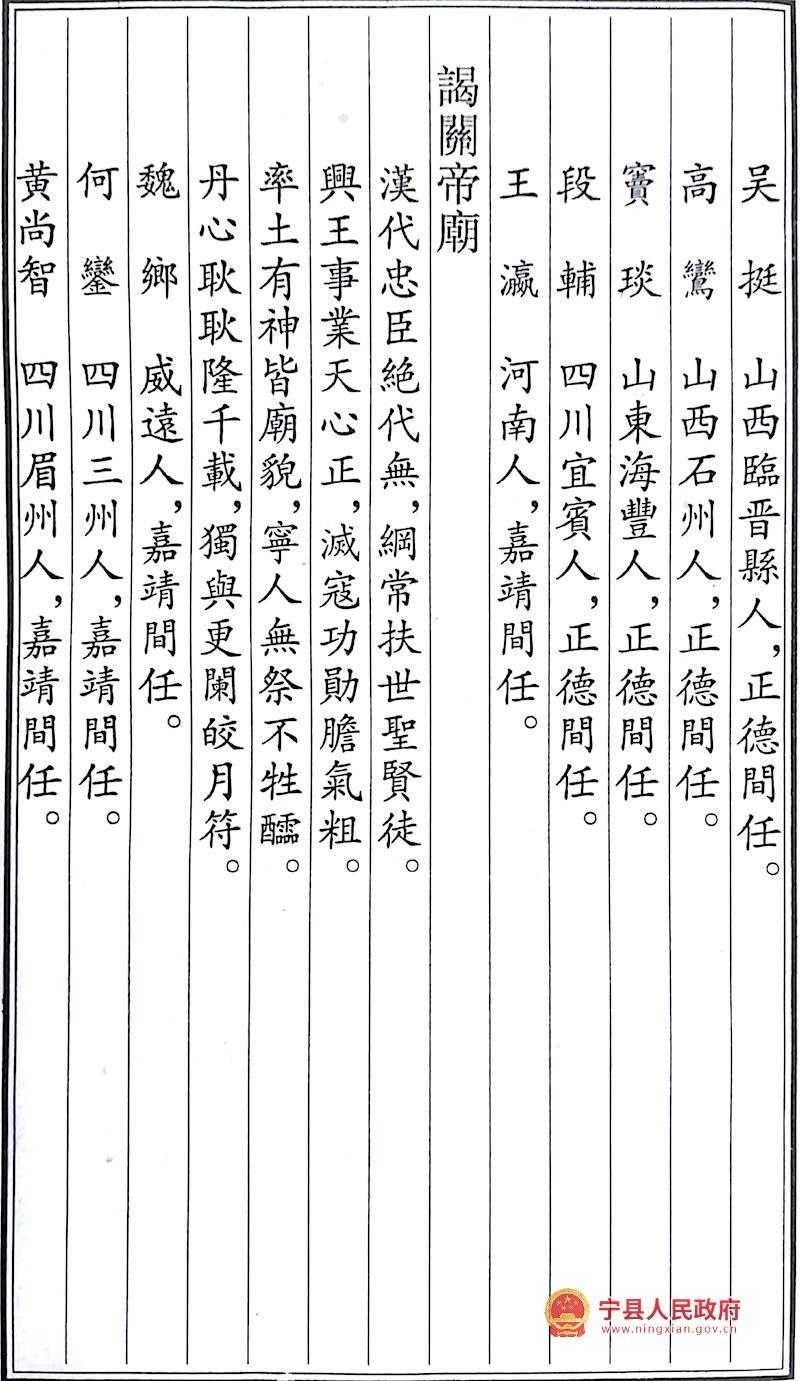 吴 挺 山西臨晋縣人，正德間任。
高 鸞 山西石州人，正德間任。
竇 琰 山東海豐人，正德間任。
段 輔 四川宜賓人，正德間任。
王 瀛 河南人，嘉靖間任。
謁關帝廟
漢代忠臣絶代無，綱常扶世聖賢徒。
興王事業天心正，滅寇功勛膽氣粗。
率土有神皆廟貌，寧人無祭不牲醹。
丹心耿耿隆千載，獨與更闌皎月符。
魏 鄉 威遠人，嘉靖間任。
何 鑾 四川三州人，嘉靖間任。
黄尚智 四川眉州人，嘉靖間任。
宁县人民政府
www.ningxian.gov.cn